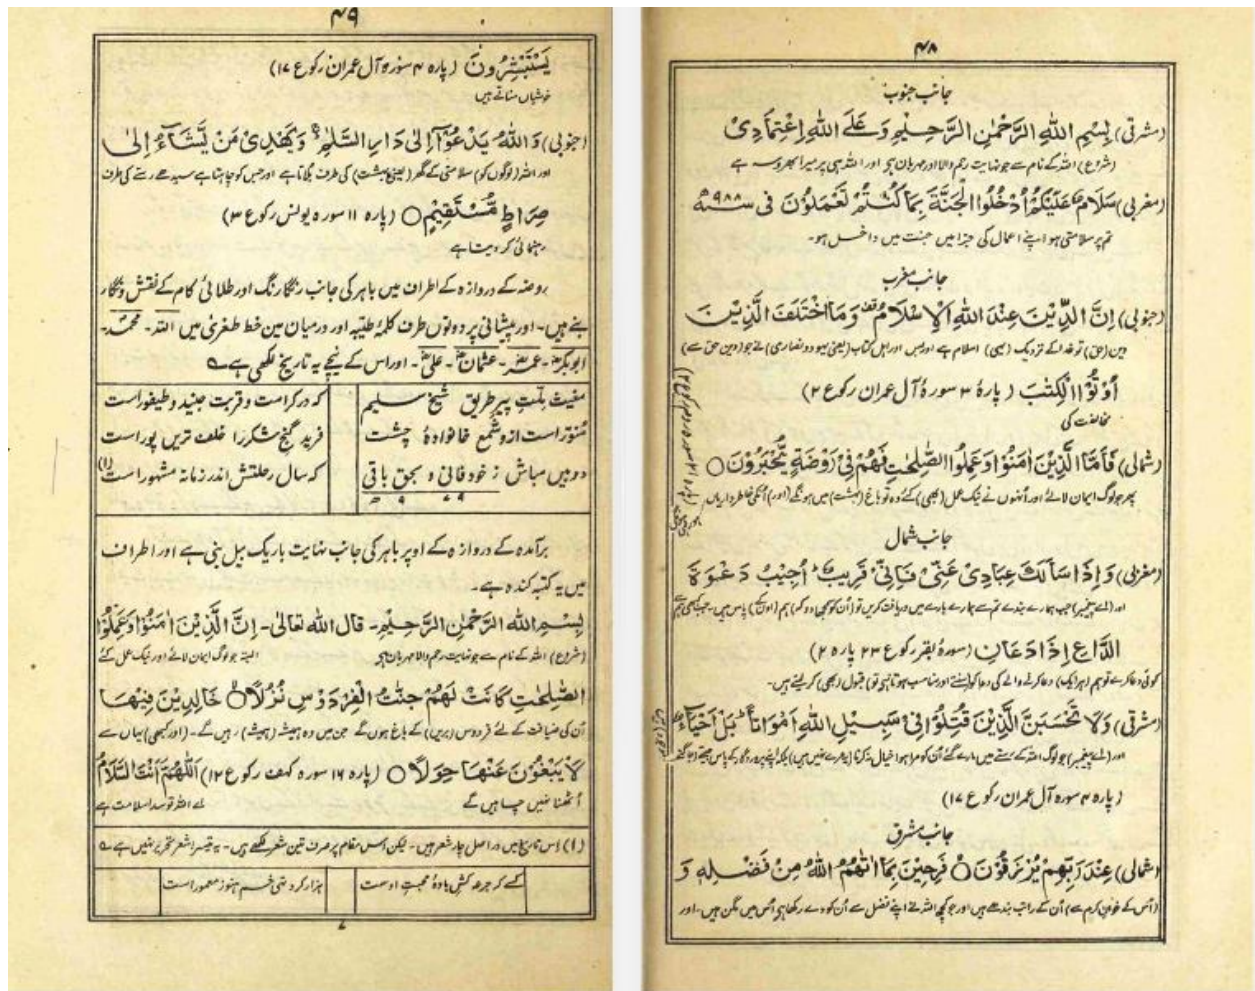 ۴۸
جانب جنوب
(مشرقی) بِسْمِ اللهِ الرَّحْمٰنِ الرَّحِيْمِ وَعَلَے اللهِ اِعْتِمَادِیْ
(شروع) اللہ کے نام سے جو نہایت رحم والا اور مہربان ہی اور اللہ ہی پر میرا بھروسہ ہے
(مغربی) سَلَامٌ عَلَيْكُمْ اُدْخُلُوا الْجَنَّةَ بِمَا كُنْتُمْ تَعْمَلُوْنَ فی سنہ ۹۸۸ھ
تم پر سلامتی ہو اپنے اعمال کی جزا میں جنت میں داخل ہو۔
جانب مغرب
(جنوبی) اِنَّ الدِّيْنَ عِنْدَ اللهِ الْاِسْلَامُ وَمَا اخْتَلَفَ الَّذِيْنَ
دین (حق) تو خدا کے نزدیک (یہی) اسلام ہے اور بس اور اہل کتاب (یعنی یہود و نصاری) نے جو (دین حق سے)
اُوْتُوا الْكِتٰبَ (پارۂ ۳ سورۂ آل عمران رکوع ۲)
مخالفت کی
(شمالی) فَاَمَّا الَّذِيْنَ اٰمَنُوْا وَعَمِلُوا الصّٰلِحٰتِ فَهُمْ فِیْ رَوْضَةٍ يُّحْبَرُوْنَ ○
پھر جو لوگ ایمان لائے اور اُنھوں نے نیک عمل (بھی) کئے وہ تو باغ (بہشت) میں ہونگے (اور) اُنکی خاطر داریاں
جانب شمال
(مغربی) وَاِذَا سَاَلَكَ عِبَادِیْ عَنِّیْ فَاِنِّیْ قَرِيْبٌ اُجِيْبُ دَعْوَةَ
اور (اے پیغمبر) جب ہمارے بندے تم سے ہمارے بارے میں دریافت کریں تو (اُن کو سمجھا دو کہ) ہم (اون کے) پاس ہیں۔ جب کبھی
الدَّاعِ اِذَا دَعَانِ (سورۂ بقر رکوع ۲۳ پارہ ۲)
کوئی دعا کرے تو ہم (ہر ایک) دعا کرنے والے کی دعا کو سنتے اور مناسب ہوتا ہی تو) قبول (بھی) کر لیتے ہیں۔
(مشرقی) وَلَا تَحْسَبَنَّ الَّذِيْنَ قُتِلُوْا فِیْ سَبِيْلِ اللهِ اَمْوَاتًا بَلْ اَحْيَاءٌ
اور (اے پیغمبر) جو لوگ اللہ کے رستے میں مارے گئے اُن کو مرا ہوا خیال نہ کرنا (یہ مرے نہیں ہیں) بلکہ اپنے پروردگار کے پاس
(پارہ ۴ سورہ آل عمران رکوع ۱۷)
جانب مشرق
(شمالی) عِنْدَ رَبِّهِمْ يُرْزَقُوْنَ ○ فَرِحِيْنَ بِمَا اٰتٰهُمُ اللهُ مِنْ فَضْلِهٖ وَ
(اُس کے خوانِ کرم سے) اُن کے راتب بندھے ہیں اور جو کچھ اللہ نے اپنے فضل سے اُن کو دے رکھا ہی اُس میں مگن ہیں۔ اور
۴۹
يَسْتَبْشِرُوْنَ (پارہ ۴ سورہ آل عمران رکوع ۱۷)
خوشیاں مناتے ہیں
(جنوبی) وَاللهُ يَدْعُوْا اِلٰی دَارِ السَّلٰمِ وَيَهْدِیْ مَنْ يَّشَاءُ اِلٰی
اور اللہ (لوگوں کو) سلامتی کے گھر (یعنی بہشت) کی طرف بُلاتا ہے اور جس کو چاہتا ہے سیدھے رستے کی طرف
صِرَاطٍ مُّسْتَقِيْمٍ ○ (پارہ ۱۱ سورہ یونس رکوع ۳)
رہنمائی کر دیتا ہے
روضہ کے دروازہ کے اطراف میں باہر کی جانب رنگا رنگ اور طلائی کام کے نقش و نگار
بنے ہیں۔ اور پیشانی پر دونوں طرف کلمۂ طیبہ اور درمیان میں خط طغریٰ میں اللہ۔ محمدؐ۔
ابوبکرؓ۔ عمرؓ۔ عثمانؓ۔ علیؓ۔ اور اس کے نیچے یہ تاریخ لکھی ہے ؎
مغیث ملت پیر طریق شیخ سلیم | کہ در کرامت و قربت جنید و طیفور است
منور است از و شمع خانوادۂ چشت | فرید گنج شکر را خلف ترین پور است
دوبیں مباش ز خود فانی و بحق باقی | کہ سال رحلتش اندر زمانہ مشہور است (۱)
۹۷۹ھ
برآمدہ کے دروازہ کے اوپر باہر کی جانب نہایت باریک بیل بنی ہے اور اطراف
میں یہ کتبہ کندہ ہے۔
بِسْمِ اللهِ الرَّحْمٰنِ الرَّحِيْمِ۔ قال الله تعالیٰ۔ اِنَّ الَّذِيْنَ اٰمَنُوْا وَعَمِلُوا
(شروع) اللہ کے نام سے جو نہایت رحم والا مہربان ہی البتہ جو لوگ ایمان لائے اور نیک عمل کئے
الصّٰلِحٰتِ كَانَتْ لَهُمْ جَنّٰتُ الْفِرْدَوْسِ نُزُلًا ○ خَالِدِيْنَ فِيْهَا
اُن کی ضیافت کے لئے فردوس (بریں) کے باغ ہوں گے جن میں وہ ہمیشہ (ہمیشہ) رہیں گے۔ (اور کبھی) یہاں سے
لَا يَبْغُوْنَ عَنْهَا حِوَلًا ○ (پارہ ۱۶ سورہ کہف رکوع ۱۲) اَللّٰهُمَّ اَنْتَ السَّلَامُ
اُٹھنا نہیں چاہیں گے اے اللہ تو سدا سلامت ہے
(۱) اِس تاریخ میں در اصل چار شعر ہیں۔ لیکن اس مقام پر صرف تین شعر لکھے ہیں۔ یہ تیسرا شعر تحریر نہیں ہے ؎
کسے کہ جرعہ کش بادۂ محبت اوست | ہزار کرد تہی خم ہنوز معمور است